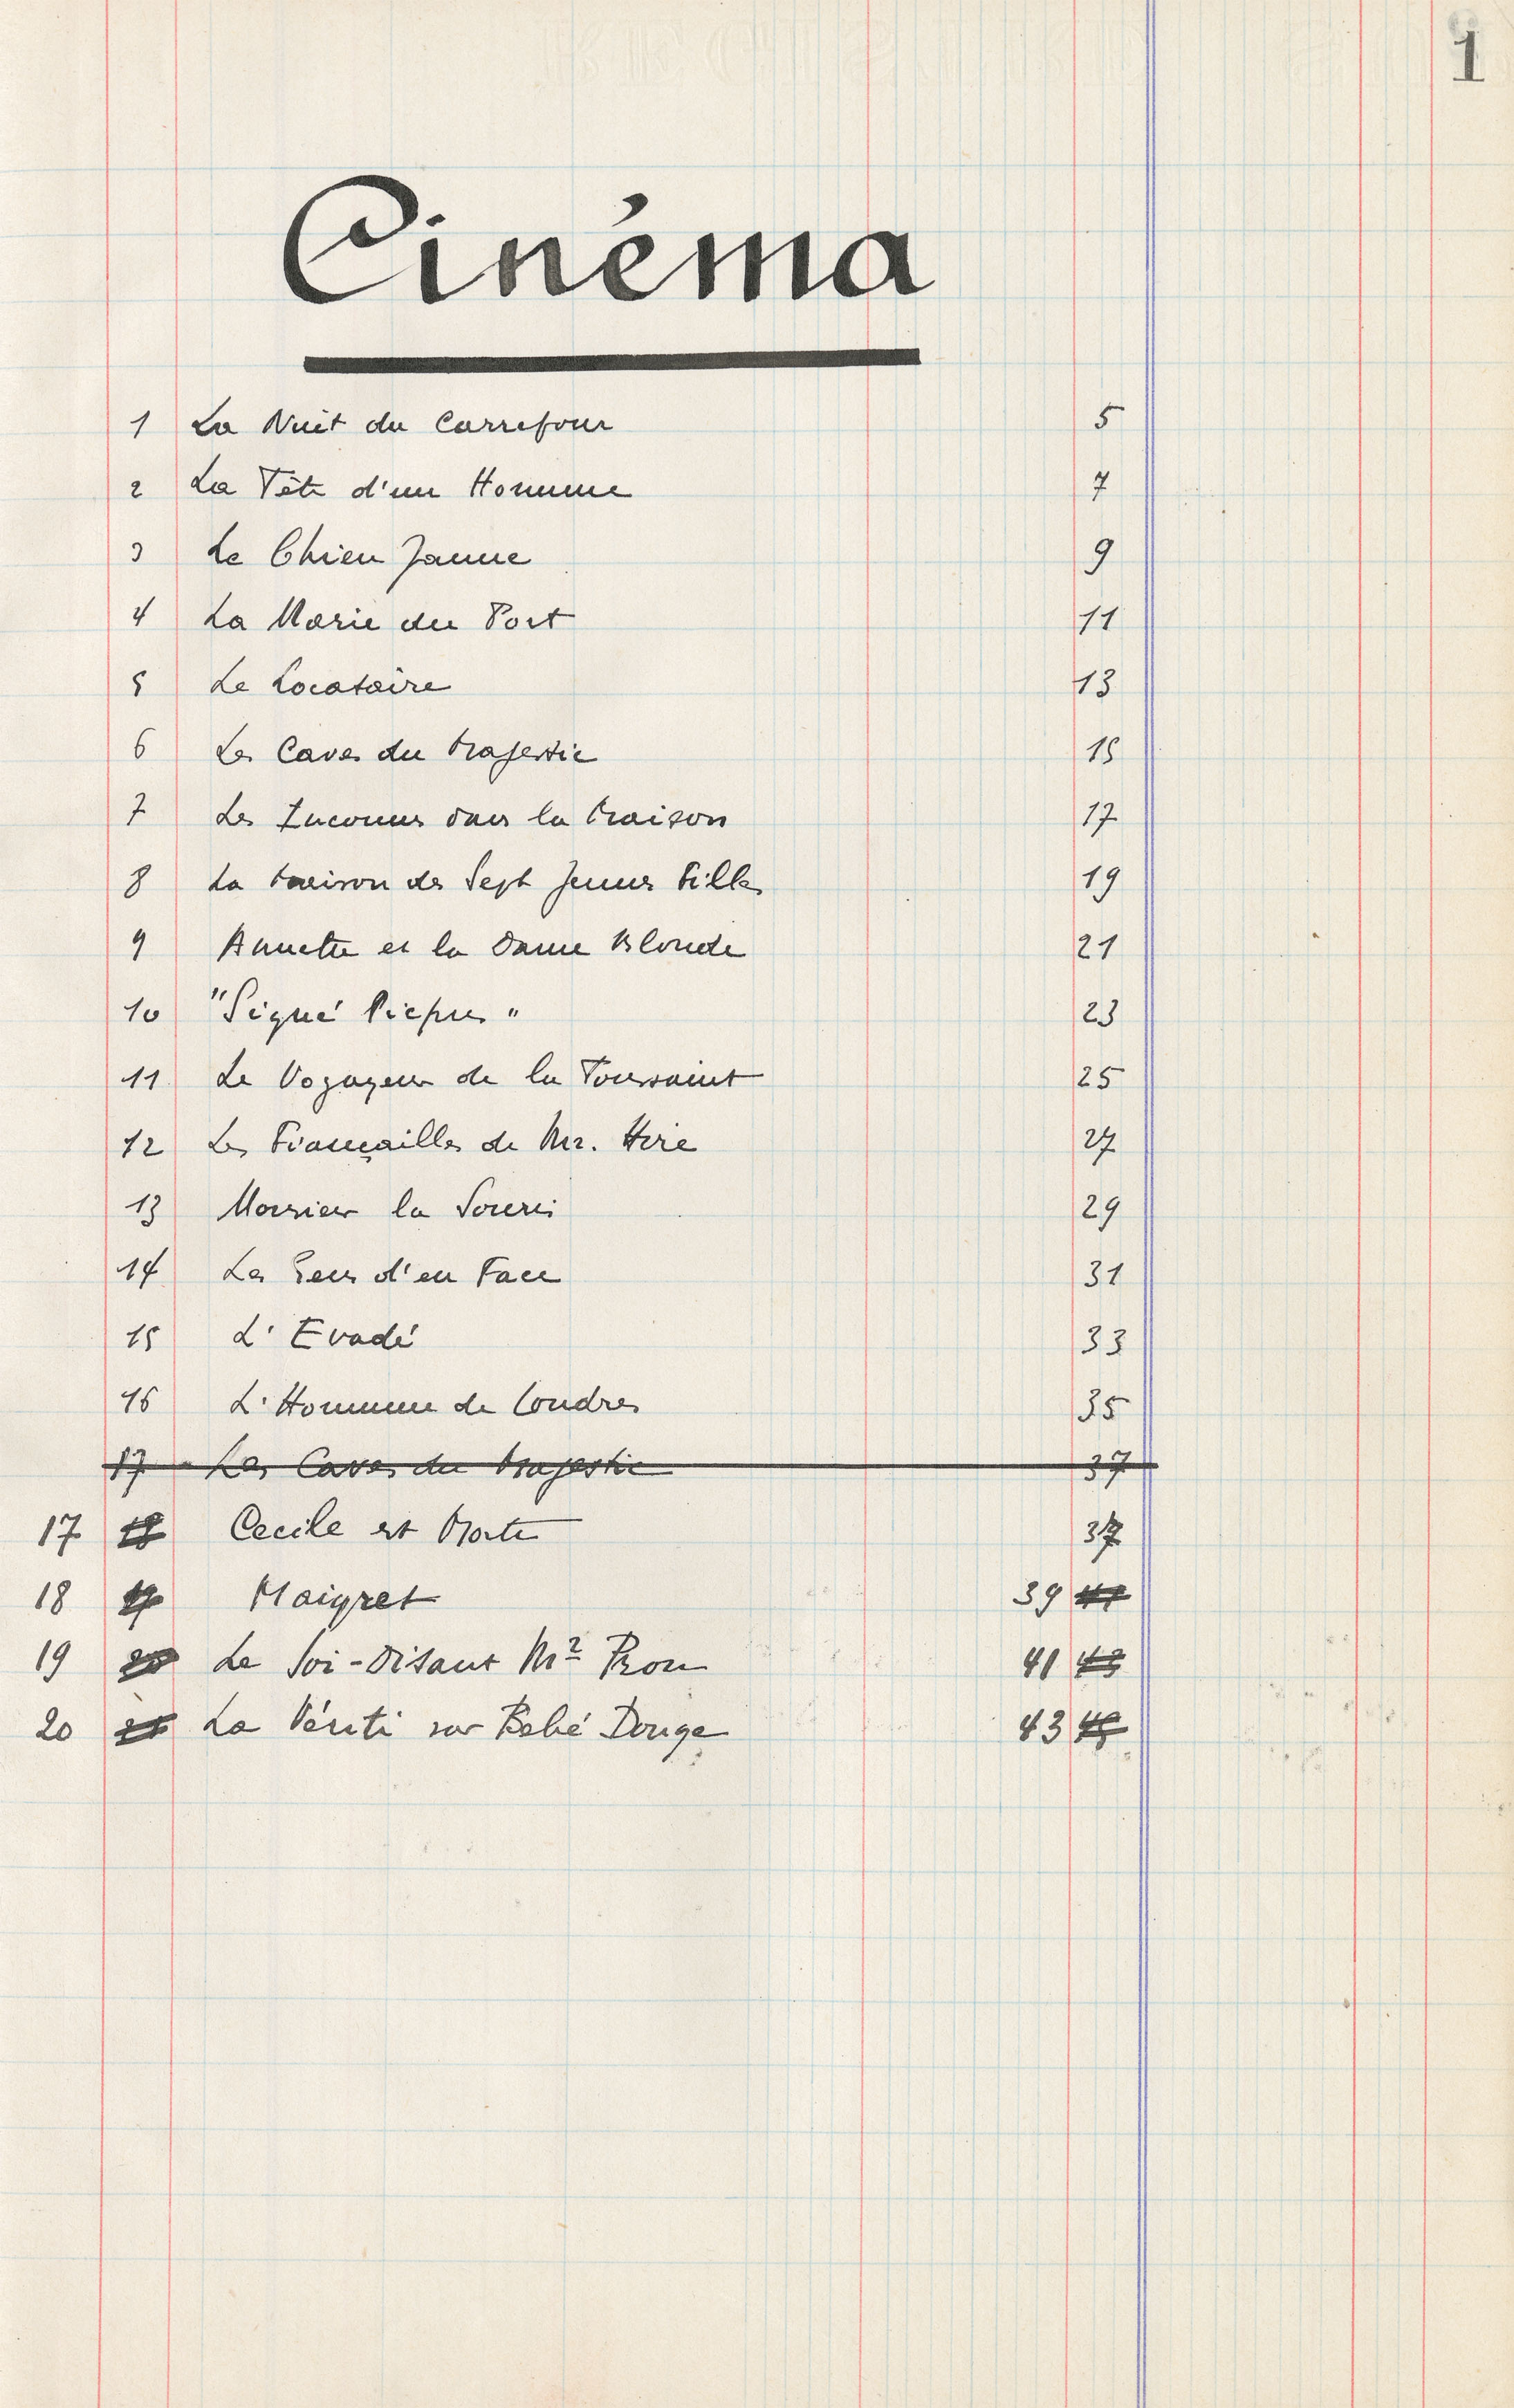 1
Cinéma
1 La Nuit du Carrefour 5
2 La Tête d'un Homme 7
3 Le Chien Jaune 9
4 La Marie du Port 11
5 Le Locataire 13
6 Les Caves du Majestic 15
7 Les Inconnus dans la Maison 17
8 La Maison des Sept Jeunes Filles 19
9 Annette et la Dame Blonde 21
10 "Signé Picpus" 23
11 Le Voyageur de la Toussaint 25
12 Les Fiançailles de Mr. Hire 27
13 Monsieur la Souris 29
14 Les Gens d'en Face 31
15 L'Evadé 33
16 L'Homme de Londres 35
17 Les Caves du Majestic 37
17 18 Cecile est Morte 37
18 19 Maigret 39
19 20 Le Soi-Disant Mr Prou 41 43
20 21 La Vérité sur Bébé Donge 43 45